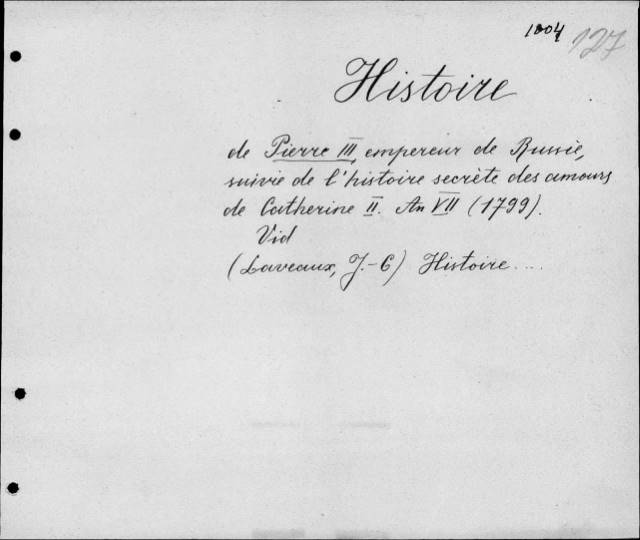 1004 127
Histoire
de Pierre III, empereur de Russie,
suivie de l'histoire secrète des amours
de Catherine II. An VII (1799).
Vid
(Laveaux, J.-C) Histoire....